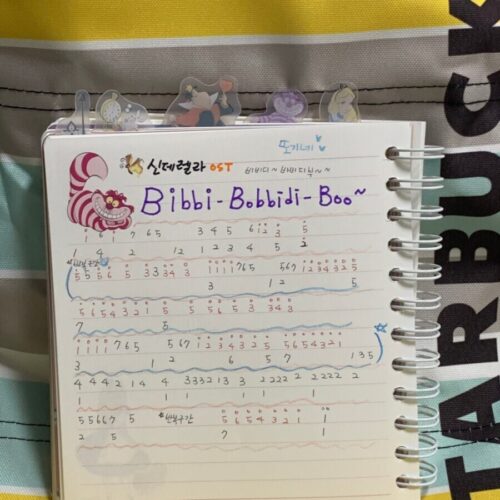 또가네
신데렐라 OST 비비디~ 바비디부~~
Bibbi-Bobbidi-Boo~
1 6 1 7 6 5 3 4 5 6 1 2 3 5
1 4 2 1 2 1 2 3 4 5 2
5 5 5 6 5 3 3 3 4 3 1 1 1 1 7 6 5 5 6 7 1 2 3 4 3 2 5
3 1 2 5
5 6 5 4 3 2 1 5 5 5 5 6 5 4 3 2 3
7 5
1 1 1 1 7 6 5 5 6 7 1 2 3 4 3 2 5 5 6 5 4 3 2 1
3 1 2 6 5 7 1 3 5
4 4 4 2 1 4 4 3 3 3 2 1 3 3 2 2 2 1 2 2 2 2
1 1 1 2 2
5 5 6 6 7 5 *반복구간 5 6 5 4 3 2 1 1
2 5 7 1
STARBUCK